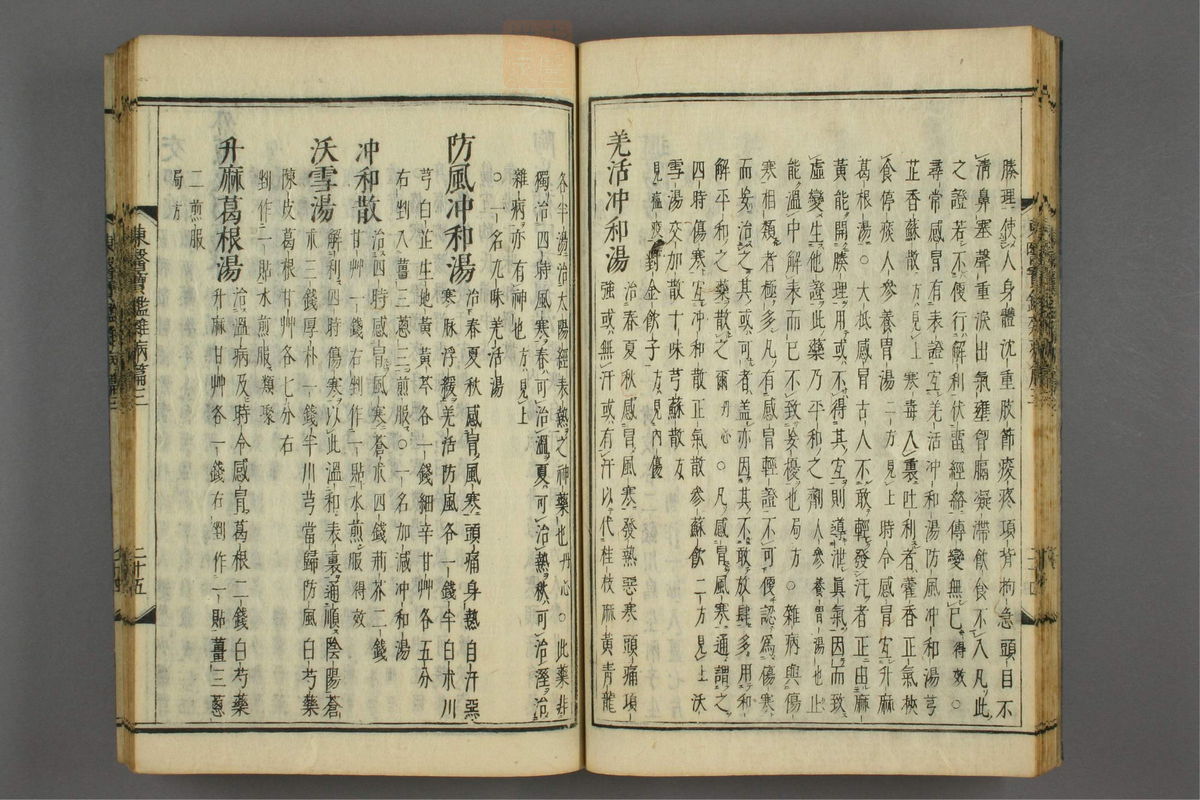 腠理使人身體沈重肢節痠疼項背拘急頭目不
淸鼻塞聲重淚出氣壅胷膈凝滯飮食不入凡此
之證若不便行解利伏畱經絡傳變無已得效○
尋常感冒有表證宜羌活沖和湯防風沖和湯芎
芷香蘇散方見上寒毒入裏吐利者藿香正氣散
食停痰人參養胃湯二方見上時令感冒宜升麻
葛根湯○大抵感冒古人不敢輕發汗者正由麻
黃能開腠理用或不得其宜則導泄眞氣因而致
虛變生他證此藥乃平和之劑人參養胃湯也止
能溫中解表而已不致妄擾也局方○雜病與傷
寒相類者極多凡有感冒輕證不可便認爲傷寒
而妄治之其或可者盖亦因其不敢放肆多用和
解平和之藥散之爾丹心○凡感冒風寒通謂之
四時傷寒宜沖和散正氣散參蘇飮二方見上沃
雪湯交加散十味芎蘇散方
見瘟疫對金飮子方見內傷
羌活沖和湯
治春夏秋感冒風寒發熱惡寒頭痛項
強或無汗或有汗以代桂枝麻黃靑龍
各半湯治太陽經表熱之神藥也丹心○此藥非
獨治四時風寒春可治溫夏可治熱秋可治溼治
雜病亦有神也方見上
○一名九味羌活湯
防風沖和湯
治春夏秋感冒風寒頭痛身熱自汗惡
寒脉浮緩羌活防風各一錢半白朮川
芎白芷生地黃黃芩各一錢細辛甘艸各五分
右剉入薑三蔥三煎服○一名加減沖和湯
沖和散
治四時感冒風寒蒼朮四錢荊芥二錢
甘艸一錢右剉作一貼水煎服得效
沃雪湯
解利四時傷寒以此溫和表裏通順陰陽蒼
朮三錢厚朴一錢半川芎當歸防風白芍藥
陳皮葛根甘艸各七分右
剉作二貼水煎服類聚
升麻葛根湯
治溫病及時令感冒葛根二錢白芍藥
升麻甘艸各一錢右剉作一貼薑三蔥
二煎服
局方
東醫寶鑑雜病篇三
二十五